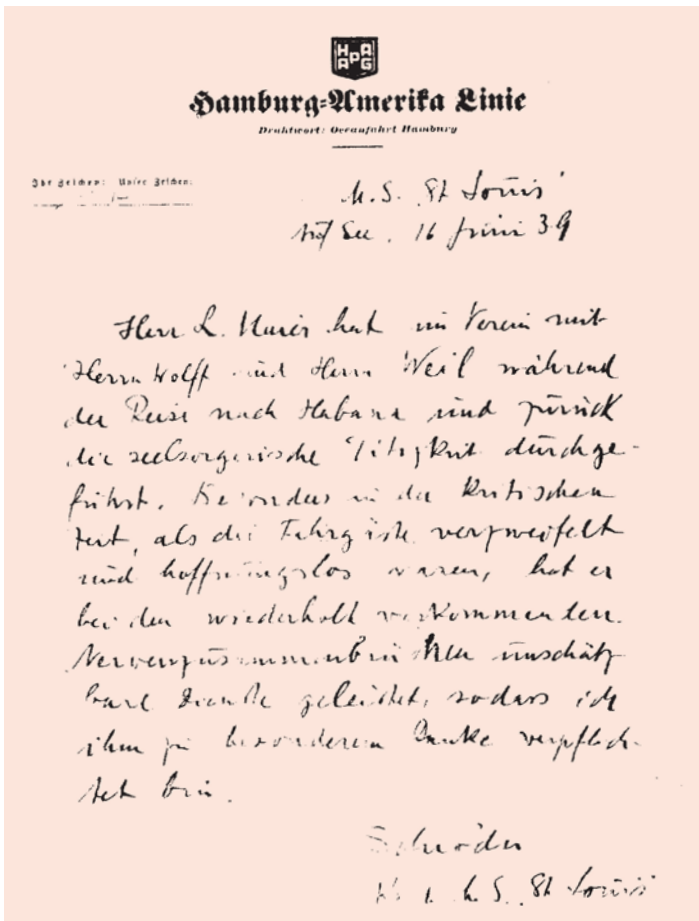 HAPAG
Hamburg-Amerika Linie
Drahtwort: Oceanfahrt Hamburg
Ihr Zeichen: Unser Zeichen:
M.S. "St Louis"
Auf See, 16 Juni 39
Herr L. hat im Verein mit
Herrn Wolff und Herrn Weil während
der Reise nach Habana und zurück
die seelsorgerische Tätigkeit durchge-
führt. Besonders in der kritischen
Zeit, als die Fahrgäste verzweifelt
und hoffnungslos waren, hat er
bei den wiederholt vorkommenden
Nervenzusammenbrüchen unschätz
bare Dienste geleistet, sodass ich
ihm zu besonderem Danke verpflich-
tet bin.
Schröder
M.S. St Louis